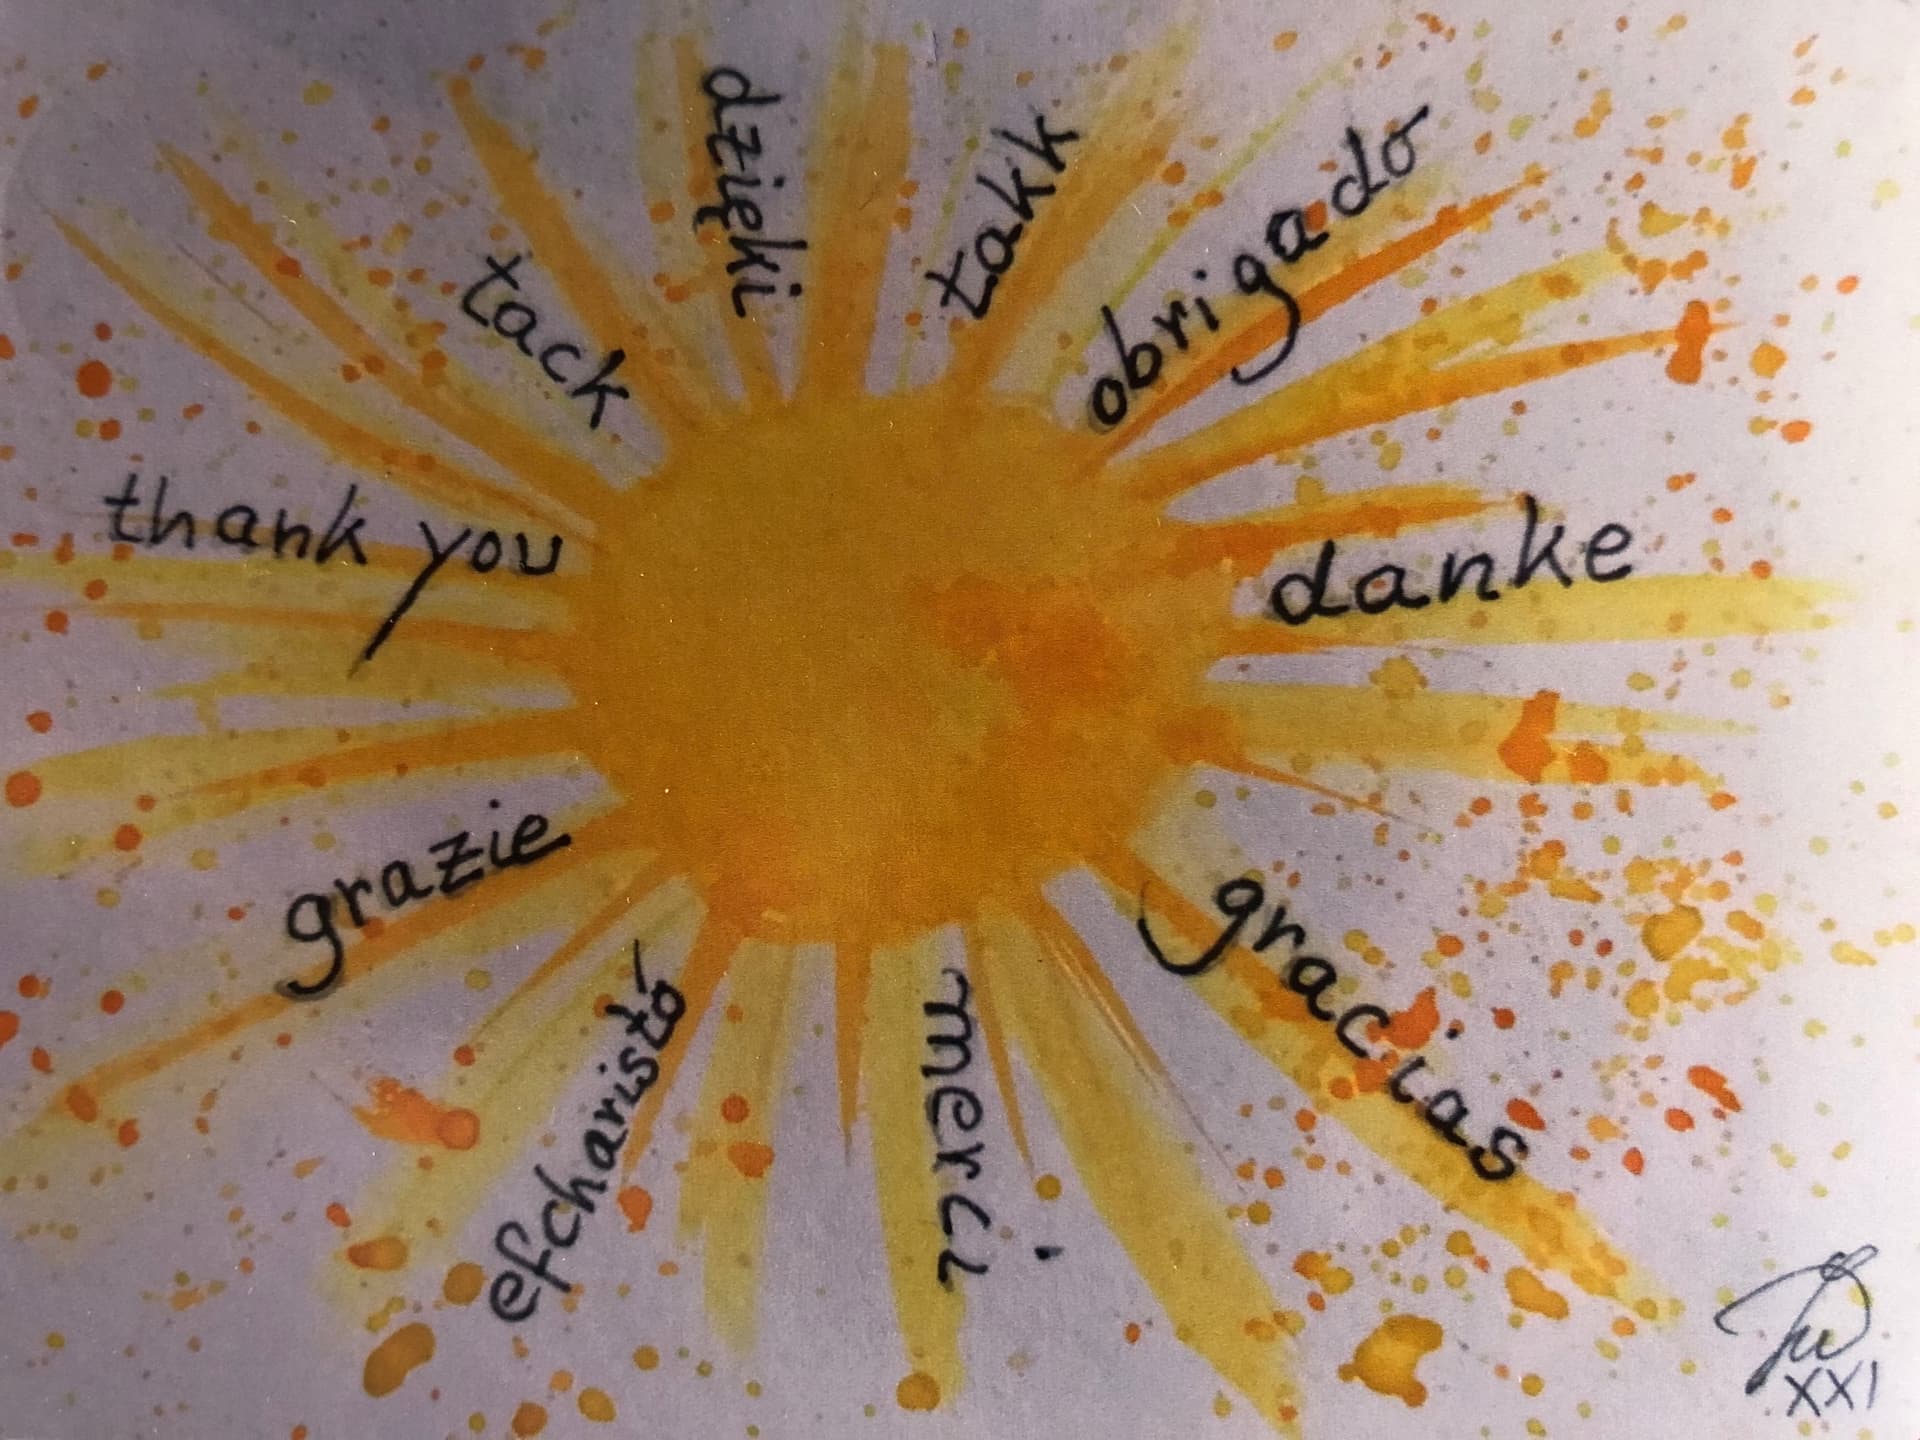 dzięki
takk
obrigado
tack
danke
thank you
grazie
gracias
efcharistó
merci
XXI